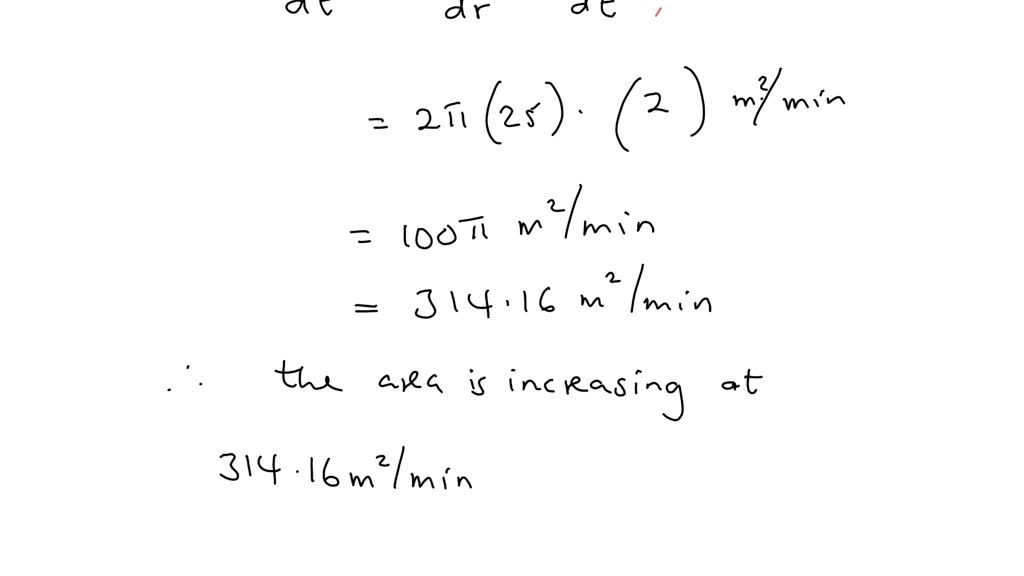 dt dr dt
= 2π(25) · (2) m²/min
= 100π m²/min
= 314.16 m²/min
∴ the area is increasing at
314.16 m²/min